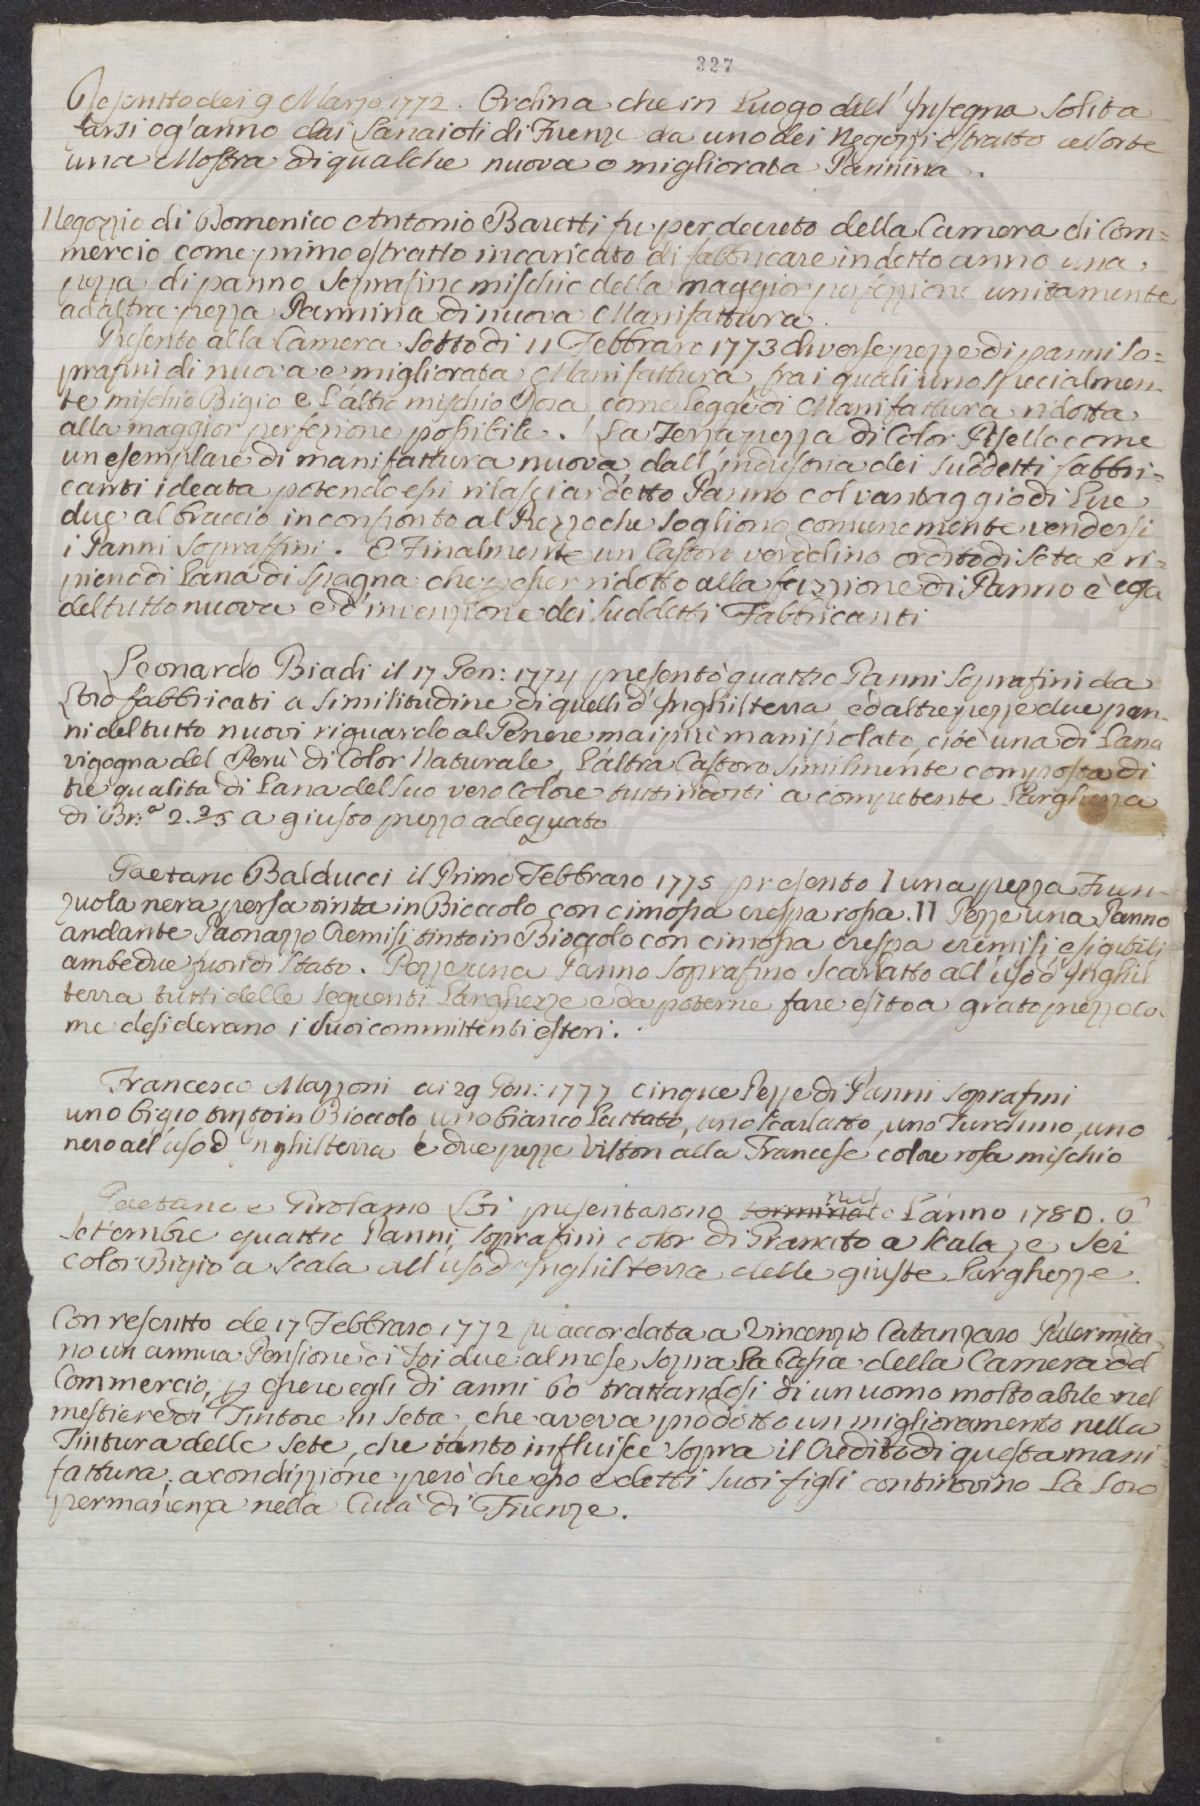 327
Rescritto dei 9 Marzo 1772. Ordina che in Luogo dell'Insegna solita
farsi og'anno dai Lanaioli di Firenze da uno dei Negozzi estratto a Sorte
una Mostra di qualche nuova o migliorata Pannina.
Negozzio di Domenico Antonio Baretti fu per decreto della Camera di Com=
mercio come primo estratto incaricato di fabbricare in detto anno una
pezza di panno Soprafine mischio della maggior perfezzione unitamente
ad altre pezza Pannina di nuova Manifattura.
Presento alla Camera Sotto di 11 Febbraro 1773 diverse pezze di panni So=
prafini di nuova e migliorata Manifattura, fra i quali uno specialmen=
te mischio Bigio e L'altro mischio Rosa, come leggesi Manifattura ridotta
alla maggior perfezione possibile. La Terza pezza di Color Pisello come
un esemplare di manifattura nuova dall'industria dei Suddetti fabbri=
canti ideata potendo essi rilasciar detto Panno col vantaggio di Lire
due al braccio in confronto al Prezzo che Sogliono comunemente vendersi
i Panni Sopraffini. E Finalmente un Castoro verdolino ordito di Seta e ri=
pieno di Lana di Spagna che per esser ridotto alla fazzione di Panno è cosa
del tutto nuova e d'invenzione dei Suddetti Fabbricanti
Leonardo Biadi il 17 Gen: 1774 presentò quattro Panni Soprafini da
Loro fabbricati a similitudine di quelli d'Inghilterra, ed altre pezze due pan=
ni del tutto nuovi riguardo al Genere mai più manipolato, cioè una di Lana
vigogna del Perù di Color Naturale, L'altra Castoro Similmente composta di
tre qualità di Lana del suo vero Colore tutti ridotti a competente Larghezza
di Br.a 2.2/5 a giusto prezzo adeguato
Gaetano Balducci il Primo Febbraro 1775 presento 1 una pezza Firen=
zuola nera persa tinta in Bioccolo con cimossa crespa rossa. 11 Pezze una Panno
andante Paonazzo Cremisi tinto in Bioccolo con cimossa crespa cremisi, esigibili
ambedue fuori di Stato. Pezze una Panno Soprafino Scarlatto all'uso d'Inghil
terra tutti delle Seguenti Larghezze e da poterne fare esito a grato prezzo co=
me desiderano i Suoi committenti esteri.
Francesco Mazzoni ai 29 Gen: 1777 cinque Pezze di Panni Soprafini
uno bigio tinto in Bioccolo, uno bianco Lattato, uno Scarlatto, uno Turchino, uno
nero all'uso d'Inghilterra e due pezze Vilton alla Francese colore rosa mischio
Gaetano e Girolamo Loi presentarono nell L'anno 1780. 6
Settembre quattro Panni Soprafini color di Granato a Scala, e Sei
color Bigio a Scala all'uso d'Inghilterra delle giuste Larghezze.
Con rescritto de 17 Febbraro 1772 fu accordata a Vincenzio Catanzaro Palermita=
no un annua Pensione di Zdi due al mese Sopra La Cassa della Camera del
Commercio, p essere egli di anni 60 trattandosi di un uomo molto abile nel
mestiere di Tintore in Seta, che aveva prodotto un miglioramento nella
Tintura delle Sete, che tanto influisce Sopra il Credito di questa mani=
fattura, a condizzione però che esso e detti suoi figli continovino La Loro
permanenza nella Città di Firenze.